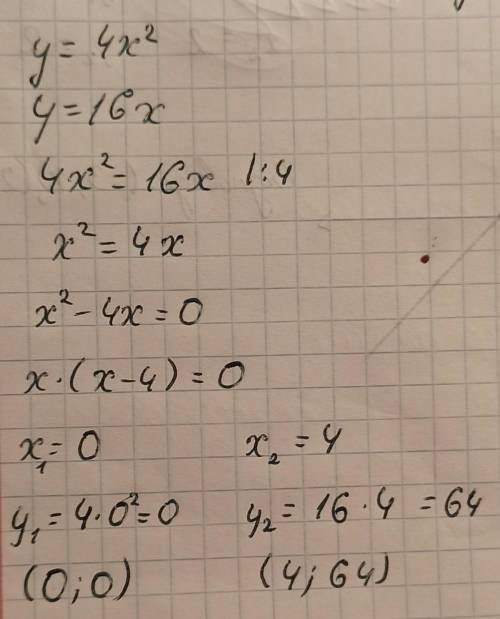 y = 4x²
y = 16x
4x² = 16x |:4
x² = 4x
x² - 4x = 0
x·(x-4) = 0
x₁ = 0 x₂ = 4
y₁ = 4·0² = 0 y₂ = 16·4 = 64
(0;0) (4;64)